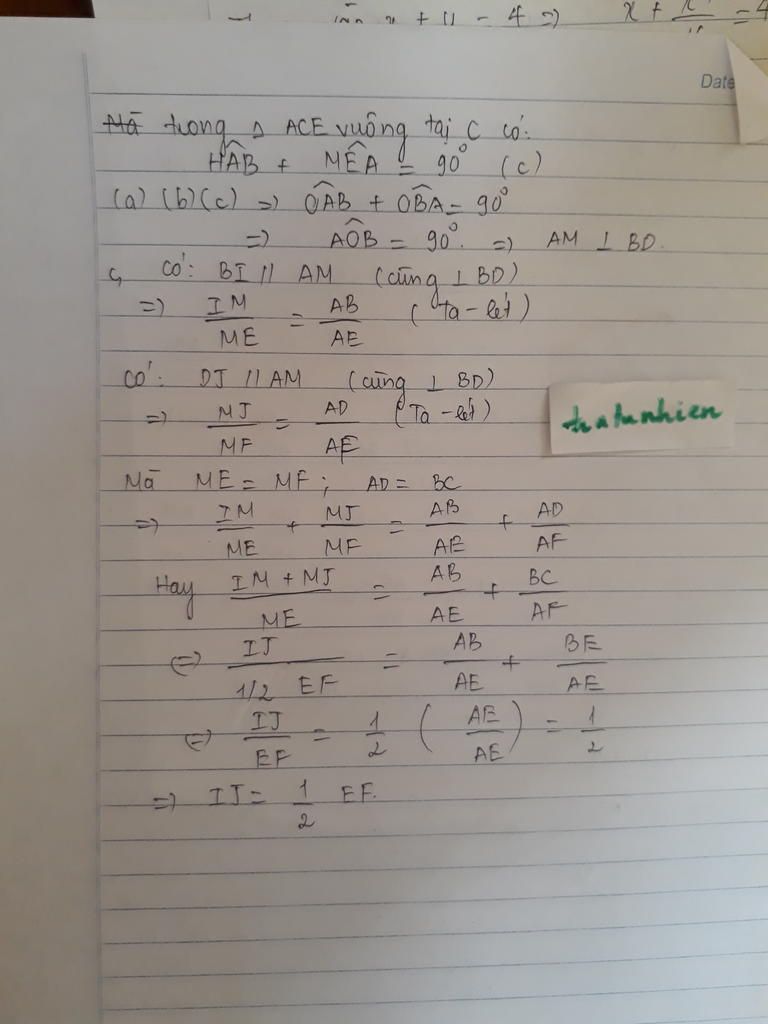 x + y = 4 => x + = 4
Date
Mà trong Δ ACE vuông tại C có:
HÂB + MÊA = 90° (c)
(a) (b)(c) => OÂB + OB̂A = 90°
=> AÔB = 90°. => AM ⊥ BD.
c, có: BI // AM (cùng ⊥ BD)
=> IM/ME = AB/AE (Ta-lét)
có: DJ // AM (cùng ⊥ BD)
=> MJ/MF = AD/AF (Ta-lét)
thatunhien
Mà ME = MF; AD = BC
=> IM/ME + MJ/MF = AB/AE + AD/AF
Hay IM + MJ/ME = AB/AE + BC/AF
<=> IJ/1/2 EF = AB/AE + BE/AE
<=> IJ/EF = 1/2 (AE/AE) = 1/2
=> IJ = 1/2 EF.